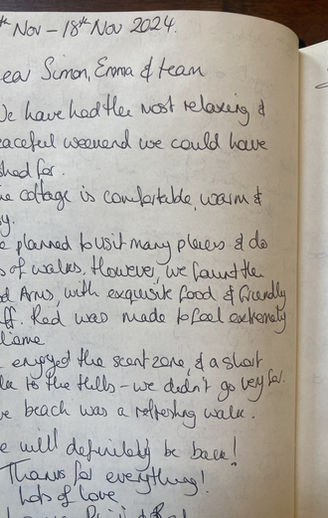 th Nov – 18th Nov 2024.
ear Simon, Emma & team
We have had the most relaxing &
eaceful weekend we could have
shed for.
he cottage is comfortable, warm &
sy.
e planned to visit many places & do
s of walks, However, we found the
d Arms, with exquisite food & friendly
ff. Red was made to feel extremely
lcome
enjoyed the scent zone, & a short
lk to the hills – we didn't go very far.
he beach was a refreshing walk.
e will definitely be back!
Thanks for everything!
Lots of love